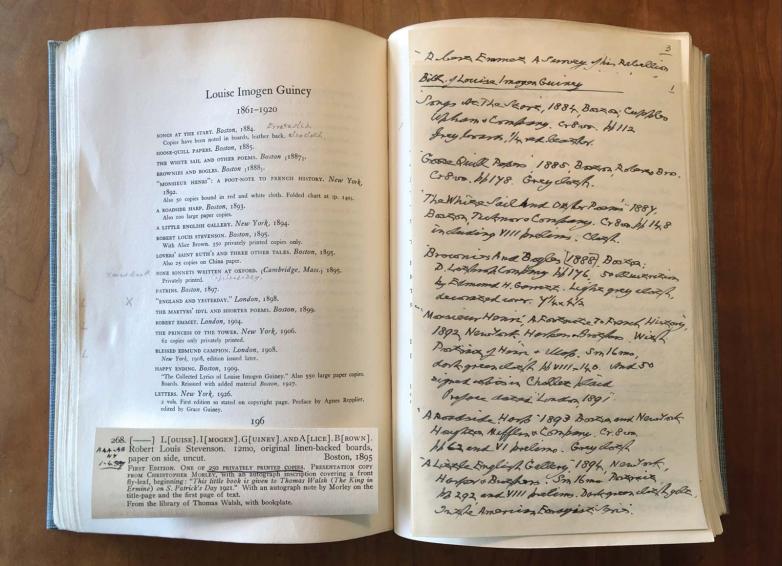 Louise Imogen Guiney
1861–1920
SONGS AT THE START. Boston, 1884.
Copies have been noted in boards, leather back.
GOOSE-QUILL PAPERS. Boston, 1885.
THE WHITE SAIL AND OTHER POEMS. Boston [1887].
BROWNIES AND BOGLES. Boston [1888].
"MONSIEUR HENRI": A FOOT-NOTE TO FRENCH HISTORY. New York,
1892.
Also 50 copies bound in red and white cloth. Folded chart at (p. 140).
A ROADSIDE HARP. Boston, 1893.
Also 200 large paper copies.
A LITTLE ENGLISH GALLERY. New York, 1894.
ROBERT LOUIS STEVENSON. Boston, 1895.
With Alice Brown. 250 privately printed copies only.
LOVERS' SAINT RUTH'S AND THREE OTHER TALES. Boston, 1895.
Also 25 copies on China paper.
NINE SONNETS WRITTEN AT OXFORD. (Cambridge, Mass.) 1895.
Privately printed.
PATRINS. Boston, 1897.
X
"ENGLAND AND YESTERDAY." London, 1898.
THE MARTYRS' IDYL AND SHORTER POEMS. Boston, 1899.
ROBERT EMMET. London, 1904.
THE PRINCESS OF THE TOWER. New York, 1906.
62 copies only privately printed.
BLESSED EDMUND CAMPION. London, 1908.
New York, 1908, edition issued later.
HAPPY ENDING. Boston, 1909.
"The Collected Lyrics of Louise Imogen Guiney." Also 550 large paper copies.
Boards. Reissued with added material Boston, 1927.
LETTERS. New York, 1926.
2 vols. First edition so stated on copyright page. Preface by Agnes Repplier,
edited by Grace Guiney.
196
268. [——] L[OUISE]. I[MOGEN]. G[UINEY]. AND A[LICE]. B[ROWN].
Robert Louis Stevenson. 12mo, original linen-backed boards,
paper on side, uncut. Boston, 1895
FIRST EDITION. ONE OF 250 PRIVATELY PRINTED COPIES. PRESENTATION COPY
FROM CHRISTOPHER MORLEY, with an autograph inscription covering the front
fly-leaf, beginning: "This little book is given to Thomas Walsh (The King in
Ermine) on S. Patrick's Day 1921." With an autograph note by Morley on the
title-page and the first page of text.
From the library of Thomas Walsh, with bookplate.
3
Emmet A Survey of his Rebellion
Bibl. of Louise Imogen Guiney
1
Songs At The Start, 1884, Boston, Cupples
Upham & Company. Cr 8vo. pp 112
Grey boards, 1/4 red leather.
Goose Quill Papers 1885 Boston, Roberts Bro.
Cr 8vo. pp 178. Grey cloth.
The White Sail And Other Poems 1887,
Boston, Ticknor & Company. Cr 8vo pp 148
including VIII prelims. Cloth.
Brownies And Bogles [1888] Boston:
D. Lothrop Company pp 176. 50 illustration
by Edmund H. Garrett. Light grey cloth,
decorated cover.
Monsieur Henri, A Footnote To French History,
1892, New York. Harper & Brothers. With
Portrait of Henri & Map. Sm 16mo,
dark green cloth pp VIII–140. And 50
signed
Preface dated London 1891
A Roadside Harp 1893 Boston and New York
Houghton Mifflin & Company. Cr 8vo
pp 62 and VI Prelims. Grey cloth
A Little English Gallery, 1894, New York,
Harper & Brothers. Sm 16mo Portrait
pp 292 and VIII prelims. Dark green cloth,
In the American Essayist Series.